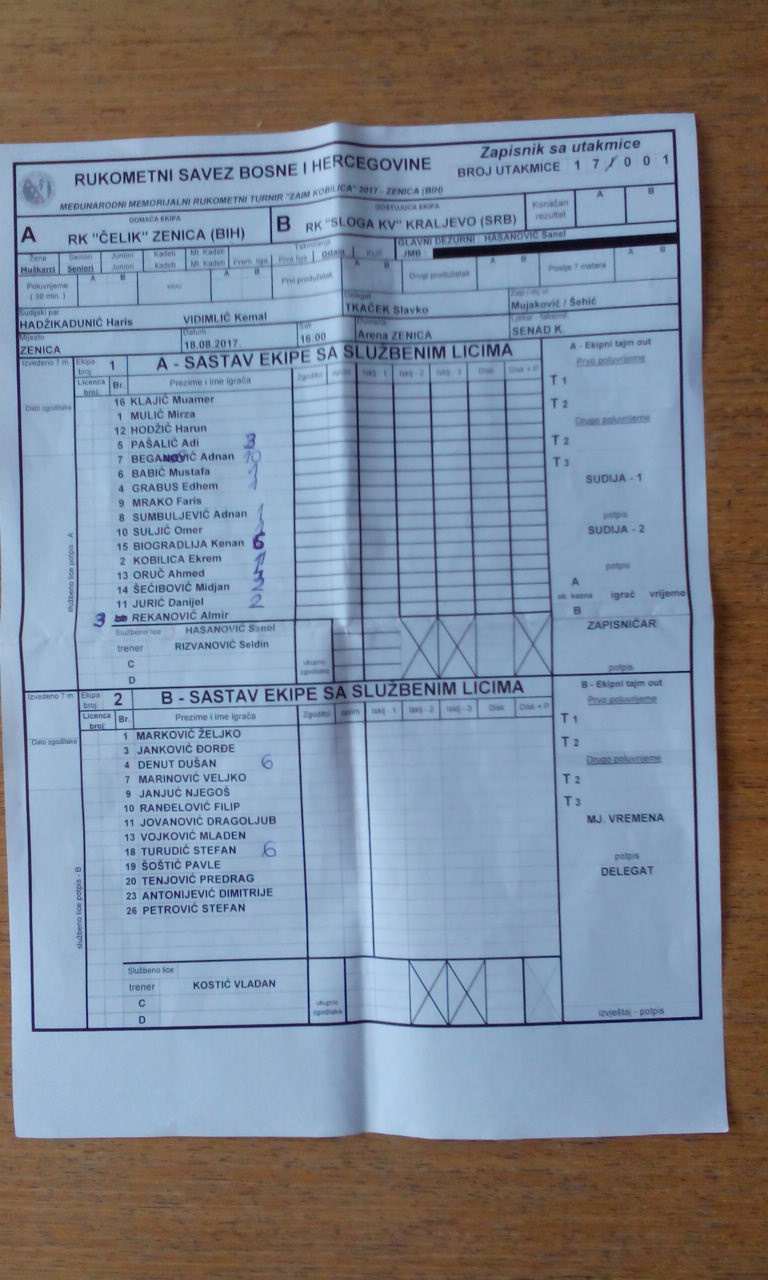 Zapisnik sa utakmice
RUKOMETNI SAVEZ BOSNE I HERCEGOVINE
BROJ UTAKMICE 1 7 / 0 0 1
MEĐUNARODNI MEMORIJALNI RUKOMETNI TURNIR "ZAIM KOBILICA" 2017 - ZENICA (BIH)
DOMAĆA EKIPA
GOSTUJUĆA EKIPA
Konačan rezultat
A B
A RK "ČELIK" ZENICA (BIH)
B RK "SLOGA KV" KRALJEVO (SRB)
GLAVNI DEŽURNI : HASANOVIĆ Sanel
JMB :
Takmičenja
Žene Seniori Juniori Kadeti Ml. Kadeti Prem. liga Prva liga Ostala KUP
Muškarci Seniori Juniori Kadeti Ml. Kadeti
Poluvrijeme ( 30 min. ) A B A B Prvi produžetak A B Drugi produžetak A B Poslije 7 metara A B
Sudijski par
HADŽIKADUNIĆ Haris VIDIMLIĆ Kemal
Delegat
TKAČEK Slavko
Mujaković / Šehić
Mjesto
ZENICA
Datum
18.08.2017.
Sat
16:00
Dvorana
Arena ZENICA
SENAD K.
Izvedeno 7 m
Ekipa broj 1
A - SASTAV EKIPE SA SLUŽBENIM LICIMA
A - Ekipni tajm out
Licenca broj: Br. Prezime i ime igrača Zgodici opom Isklj - 1 Isklj - 2 Isklj - 3 Disk Disk + P
Prvo poluvrijeme
Dato zgoditaka
16 KLAJIĆ Muamer
1 MULIĆ Mirza
12 HODŽIĆ Harun
5 PAŠALIĆ Adi 3
7 BEGANOVIĆ Adnan 10
6 BABIĆ Mustafa 1
4 GRABUS Edhem 1
9 MRAKO Faris
8 SUMBULJEVIĆ Adnan 1
10 SULJIĆ Omer 1
15 BIOGRADLIJA Kenan 6
2 KOBILICA Ekrem 1
13 ORUČ Ahmed
14 ŠEĆIBOVIĆ Midjan 3
11 JURIĆ Danijel 2
3 REKANOVIĆ Almir
službeno lice potpis - A
T 1
T 2
Drugo poluvrijeme
T 2
T 3
SUDIJA - 1
potpis
SUDIJA - 2
potpis
A
igrač vrijeme
B
ZAPISNIČAR
potpis
Službeno lice HASANOVIĆ Sanel
trener RIZVANOVIĆ Seldin
C
D
ukupno zgoditaka
Izvedeno 7 m
Ekipa broj 2
B - SASTAV EKIPE SA SLUŽBENIM LICIMA
B - Ekipni tajm out
Licenca broj: Br. Prezime i ime igrača Zgoditci opom Isklj - 1 Isklj - 2 Isklj - 3 Disk Disk + P
Prvo poluvrijeme
Dato zgoditaka
1 MARKOVIĆ ŽELJKO
3 JANKOVIĆ ĐORĐE
4 DENUT DUŠAN 6
7 MARINOVIĆ VELJKO
9 JANJUĆ NJEGOŠ
10 RANĐELOVIĆ FILIP
11 JOVANOVIĆ DRAGOLJUB
13 VOJKOVIĆ MLADEN
18 TURUDIĆ STEFAN 6
19 ŠOŠTIĆ PAVLE
20 TENJOVIĆ PREDRAG
23 ANTONIJEVIĆ DIMITRIJE
26 PETROVIĆ STEFAN
službeno lice potpis - B
T 1
T 2
Drugo poluvrijeme
T 2
T 3
MJ. VREMENA
potpis
DELEGAT
Službeno lice
trener KOSTIĆ VLADAN
C
D
ukupno zgoditaka
izvještaj - potpis